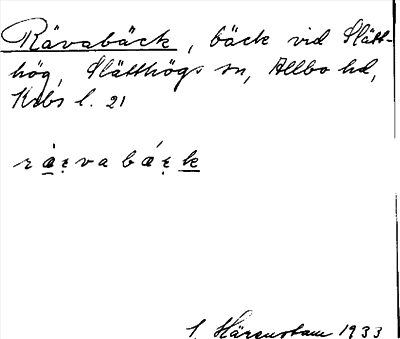 Rävabäck, bäck vid Slätt-
hög, Slätthögs sn, Allbo hd,
Krbs l. 21
rävabäck
S. Härenstam 1933